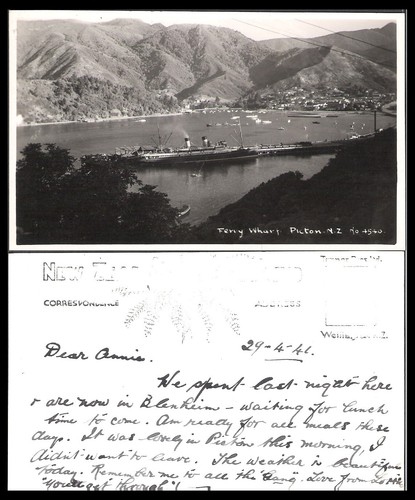 Ferry Wharf Picton. N.Z No 4540.
NEW ZEA
CORRESPONDENCE ADDRESS
Wellington N.Z.
29-4-41.
Dear Annie.
We spent last night here
& are now in Blenheim - waiting for lunch
time to come. Am ready for all meals these
days. It was lovely in Picton this morning, I
didn't want to leave. The weather is beautiful
today. Remember me to all the "Gang". Love from
"You'll get through"!